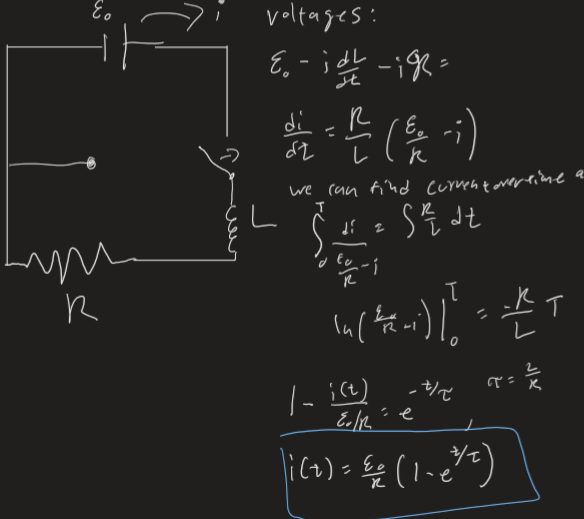 ε₀ i
L
R
voltages:
ε₀ - i dL/dt - iR =
di/dt = R/L (ε₀/R - i)
we can find current over time a
∫₀ᵀ di/(ε₀/R - i) = ∫ R/L dt
ln(ε₀/R - i)|₀ᵀ = -R/L T
1 - i(t)/(ε₀/R) = e^(-t/τ), τ = L/R
i(t) = ε₀/R (1 - e^(t/τ))